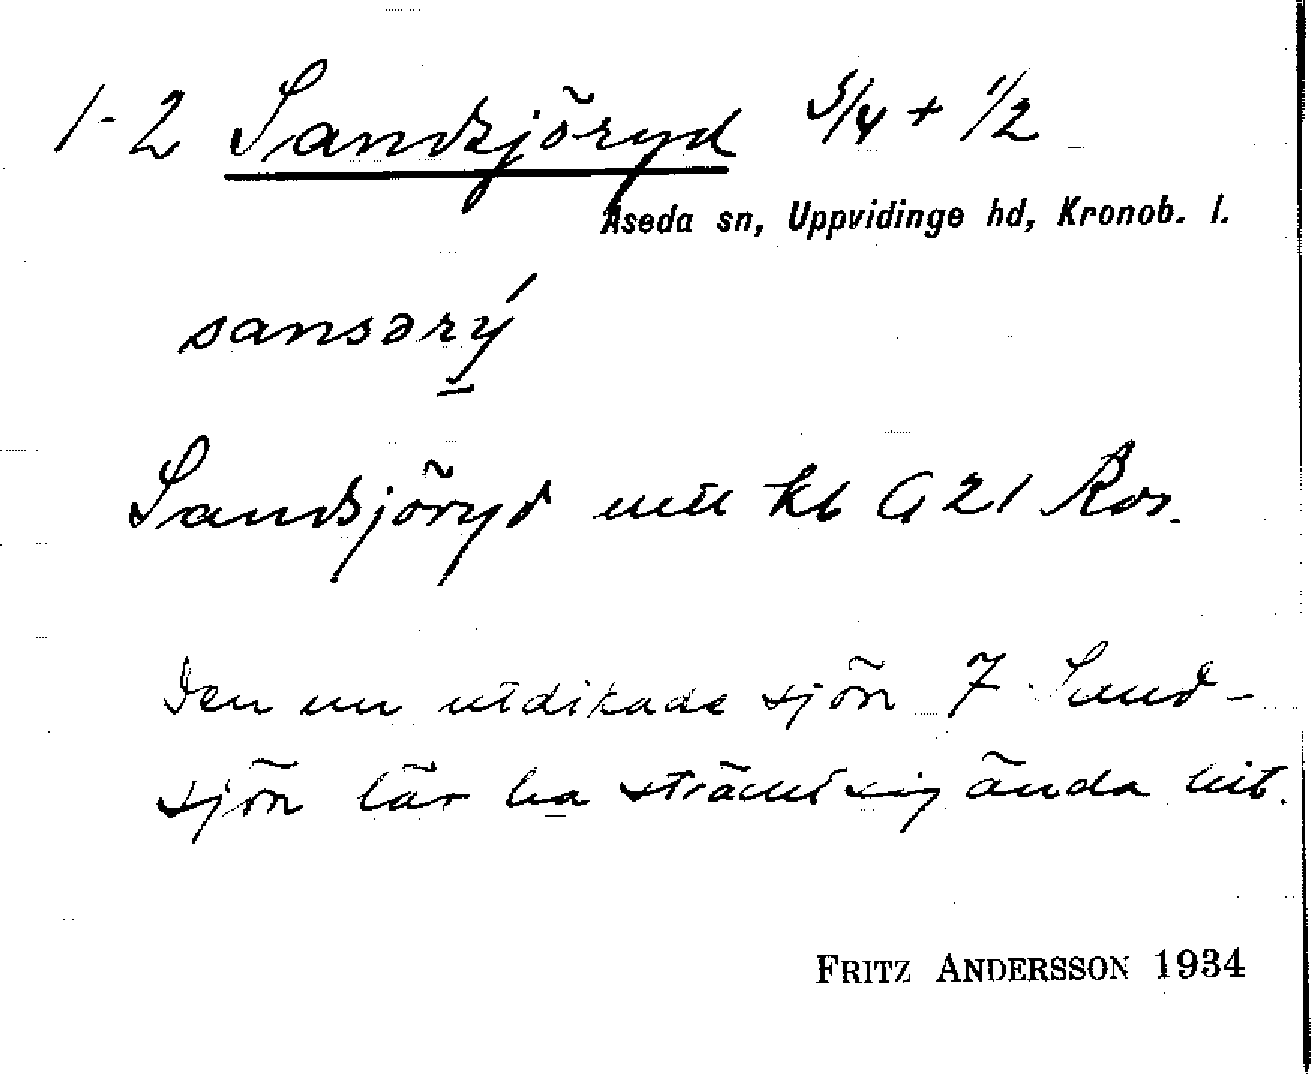 1-2 Sandsjöryd 3/4 + 1/2
Åseda sn, Uppvidinge hd, Kronob. l.
sansərý
Sandsjöryd nu kb G 21 Ros.
Den nu utdikade sjön 7 Sand-
sjön lär ha sträckt sig ända hit.
FRITZ ANDERSSON 1934